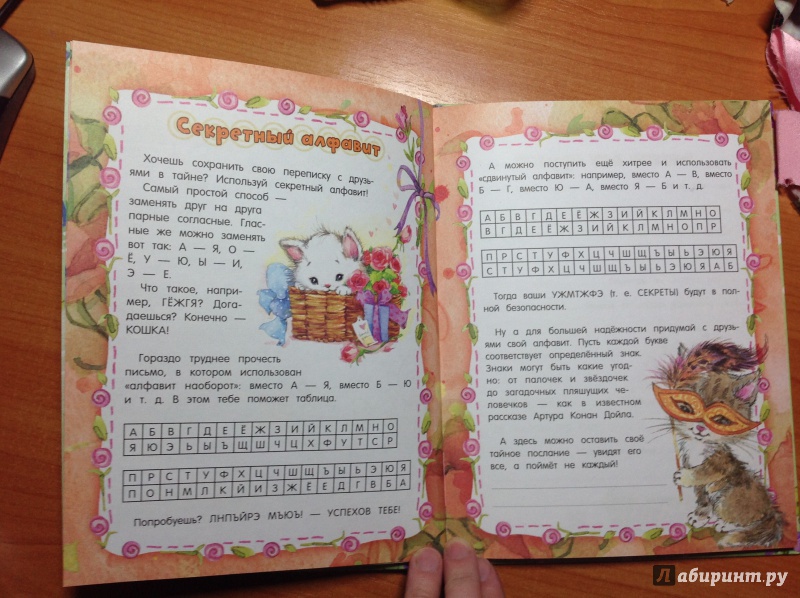 Секретный алфавит
Хочешь сохранить свою переписку с друзь-
ями в тайне? Используй секретный алфавит!
Самый простой способ —
заменять друг на друга
парные согласные. Глас-
ные же можно заменять
вот так: А — Я, О —
Ё, У — Ю, Ы — И,
Э — Е.
Что такое, напри-
мер, ГЁЖГЯ? Дога-
даешься? Конечно —
КОШКА!
Гораздо труднее прочесть
письмо, в котором использован
«алфавит наоборот»: вместо А — Я, вместо Б — Ю
и т. д. В этом тебе поможет таблица.
А Б В Г Д Е Ё Ж З И Й К Л М Н О
Я Ю Э Ь Ы Ъ Щ Ш Ч Ц Х Ф У Т С Р
П Р С Т У Ф Х Ц Ч Ш Щ Ъ Ы Ь Э Ю Я
П О Н М Л К Й И З Ж Ё Е Д Г В Б А
Попробуешь? ЛНПЪЙРЭ МЪЮЪ! — УСПЕХОВ ТЕБЕ!
А можно поступить ещё хитрее и использовать
«сдвинутый алфавит»: например, вместо А — В, вместо
Б — Г, вместо Ю — А, вместо Я — Б и т. д.
А Б В Г Д Е Ё Ж З И Й К Л М Н О
В Г Д Е Ё Ж З И Й К Л М Н О П Р
П Р С Т У Ф Х Ц Ч Ш Щ Ъ Ы Ь Э Ю Я
С Т У Ф Х Ц Ч Ш Щ Ъ Ы Ь Э Ю Я А Б
Тогда ваши УЖМТЖФЭ (т. е. СЕКРЕТЫ) будут в пол-
ной безопасности.
Ну а для большей надёжности придумай с друзь-
ями свой алфавит. Пусть каждой букве
соответствует определённый знак.
Знаки могут быть какие угод-
но: от палочек и звёздочек
до загадочных пляшущих че-
ловечков — как в известном
рассказе Артура Конан Дойла.
А здесь можно оставить своё
тайное послание — увидят его
все, а поймёт не каждый!
Лабиринт.ру